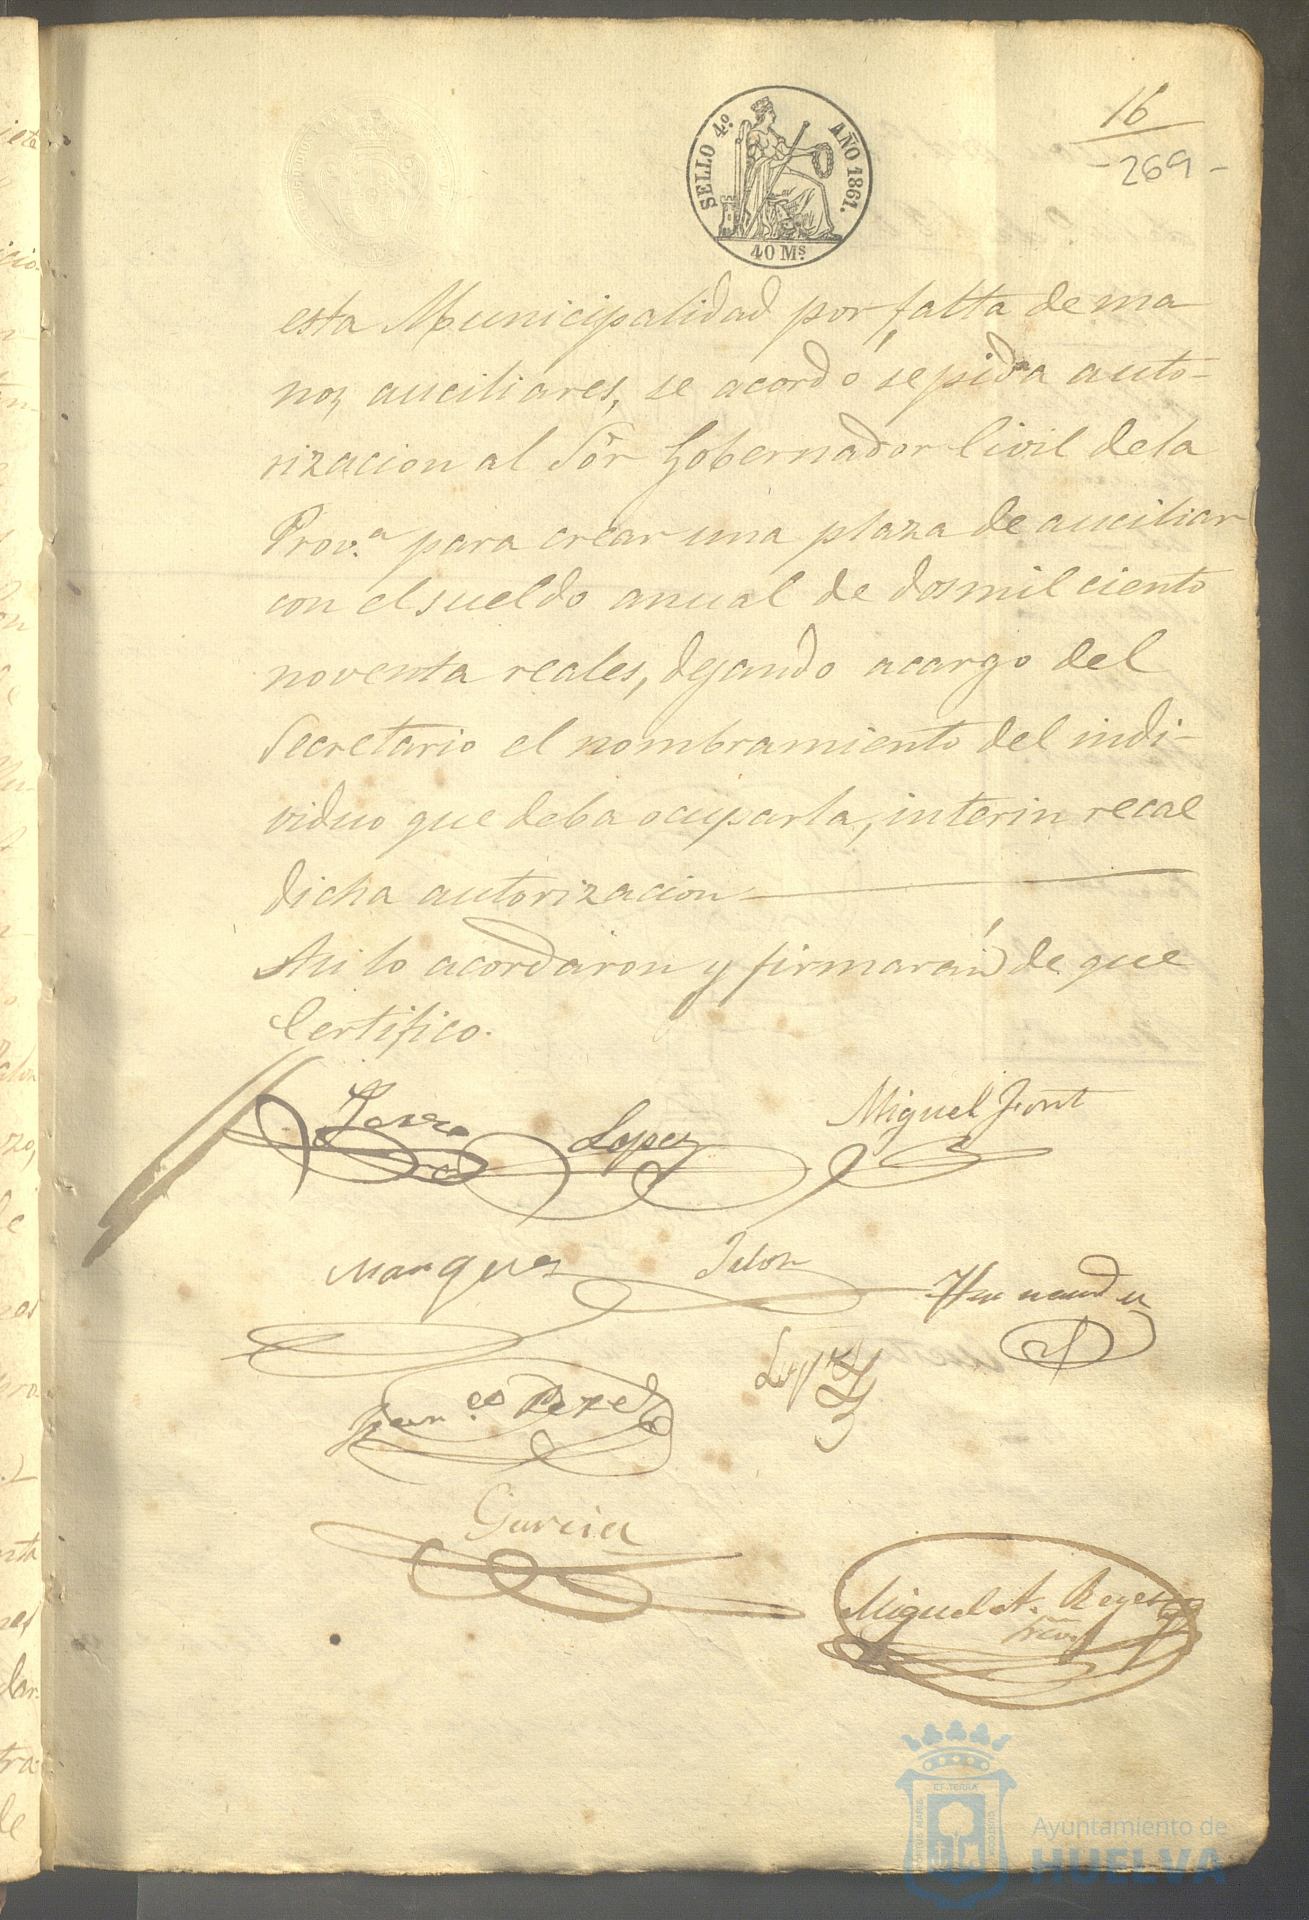 16
-269-
SELLO 4.º AÑO 1861.
40 Ms
esta Municipalidad por falta de ma
noz auciliares, se acordó se pida auto-
rizacion al Sõr Gobernador Civil dela
Prov.ª para crear una plaza de auciliar
con el sueldo anual de dosmil ciento
noventa reales, dejando acargo del
Secretario el nombramiento del indi-
viduo que deba ocuparla, interin recae
dicha autorizacion
Asi lo acordaron y firmarán de que
Certifico.
Lopez Miguel Font
Marquez Jalon Hernandez
Fran.co Perez
Garcia
Miguel A. Reyes
srio
ET TERRA
Ayuntamiento de
HUELVA